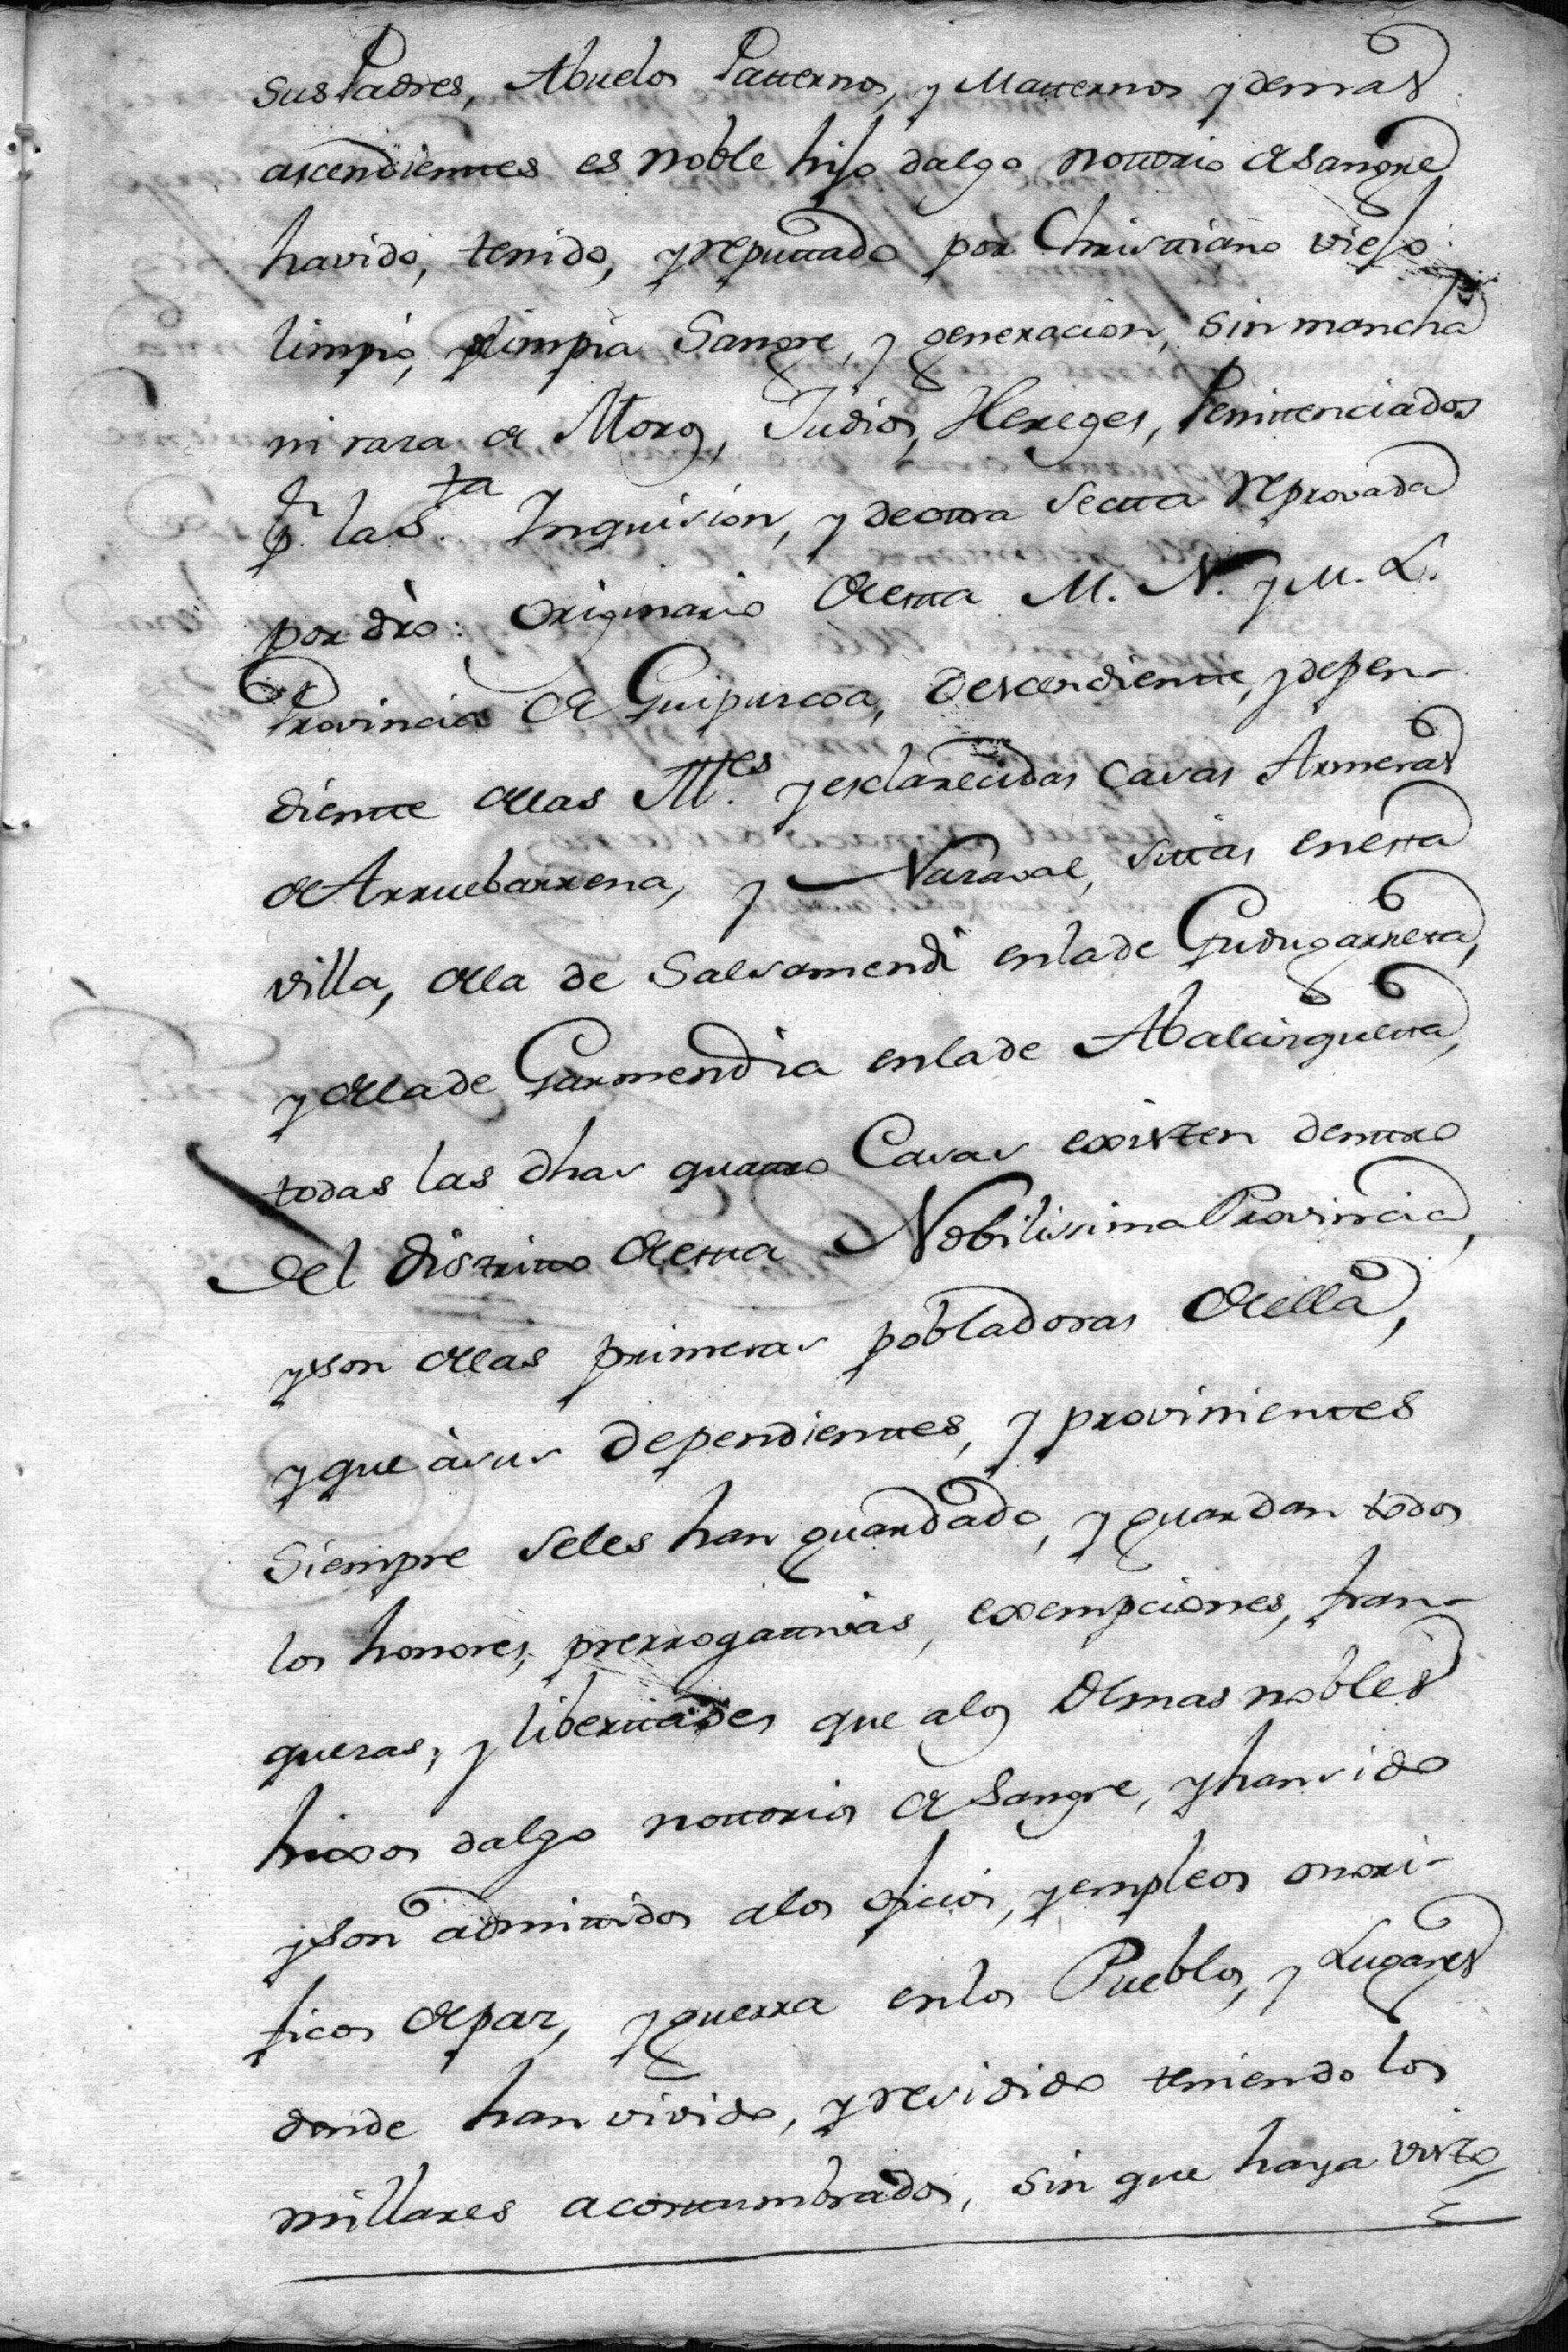 sus Padres, Abuelos Patternos, y Matternos y demas
ascendientes es noble hijo dalgo nottorio de sangre
havido, tenido, y reputtado por Christtiano viejo
limpio, y limpia Sangre, y generacion, sin mancha
ni raza de Moros, Judios, Hereges, Penittenciados
pr. la Sta. Inquisision, y de otra sectta reprovada
por dro: originario de estta M. N. y M. L.
Provincia de Guipuzcoa, descendiente, y depen-
diente de las Ntes. y esclarecidas Casas Armeras
de Arruebarrena, y Nazaval, sittas en estta
villa, de la de Salsamendi en la de Gudugarreta,
y de la de Garmendia en la de Abalcisguetta,
todas las dhas quattro Casas existen dentro
del distritto de estta Nobilissima Provincia,
y son de las primeras pobladoras de ella,
y que à sus dependienttes, y provinienttes
Siempre se les han guardado, y guardan todos
los honores, prerrogattivas, exempciones, fran-
quezas, y liberttades que a los demas nobles
hixos dalgo nottorios de sangre, y han sido
y son admittidos a los oficios, y empleos onori-
ficos de paz, y guerra en los Pueblos, y Lugares
donde han vivido, y residido teniendo los
millares acosttumbrados, sin que haya visto